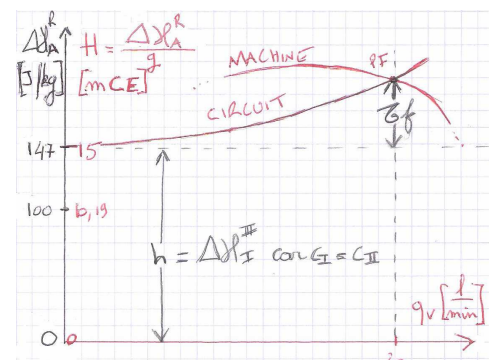 Δℋ_A^R [J/kg]
H = Δℋ_A^R / g [mCE]
MACHINE
PF
CIRCUIT
τf
147 15
100 10,19
h = Δℋ_I^II con c_I = c_II
q_v [l/min]
0 0